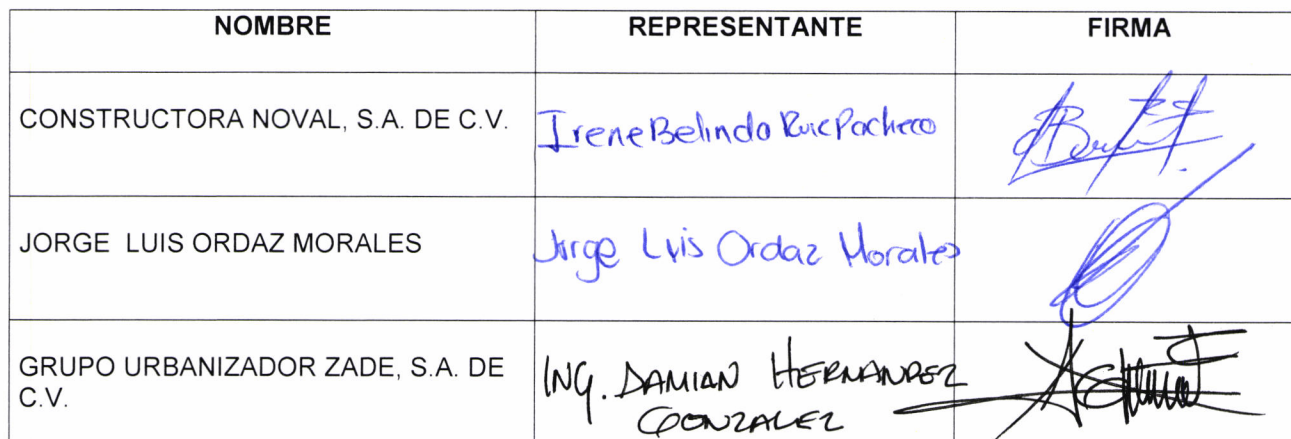 NOMBRE REPRESENTANTE FIRMA
CONSTRUCTORA NOVAL, S.A. DE C.V. Irene Belinda Ruiz Pacheco
JORGE LUIS ORDAZ MORALES Jorge Luis Ordaz Morales
GRUPO URBANIZADOR ZADE, S.A. DE ING. DAMIAN HERNANDEZ
C.V. GONZALEZ